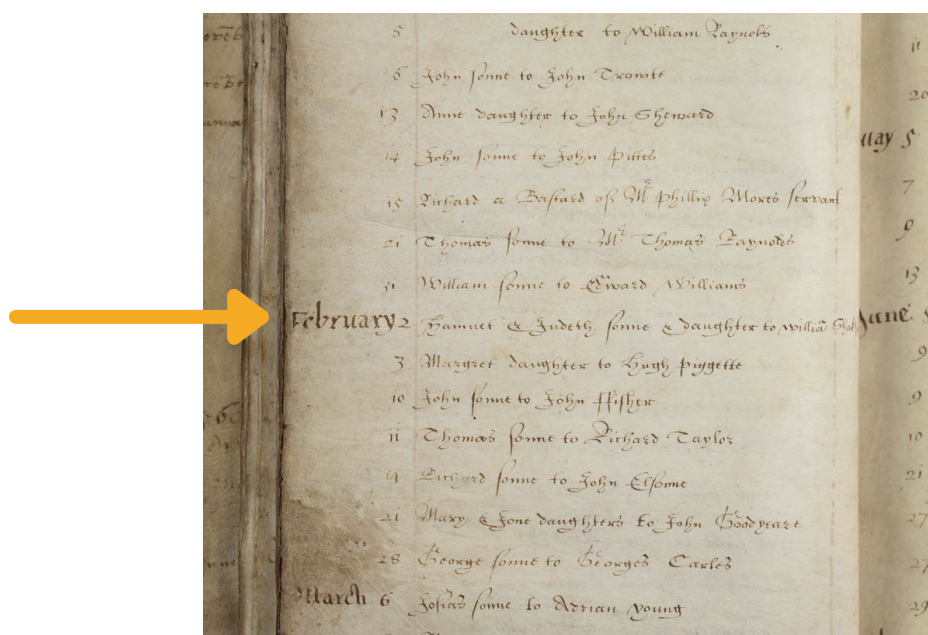 5 daughter to William Raynols
6 John sonne to John Trowte
13 Anne daughter to John Sheward
14 John sonne to John Pittes
15 Richard a Bastard of Mr Phillip Mores servant
21 Thomas sonne to Mr Thomas Raynoles
31 William sonne to Edward Williams
February 2 Hamnet & Judeth sonne & daughter to Willia
3 Margret daughter to Hugh Piggette
10 John sonne to John ffisher
11 Thomas sonne to Richard Taylor
14 Richard sonne to John Elsonne
21 Mary & Jone daughters to John Goodyeare
28 George sonne to Georges Carles
March 6 Josias sonne to Adrian young
11
20
5
7
9
13
June
9
9
10
21
27
27
29